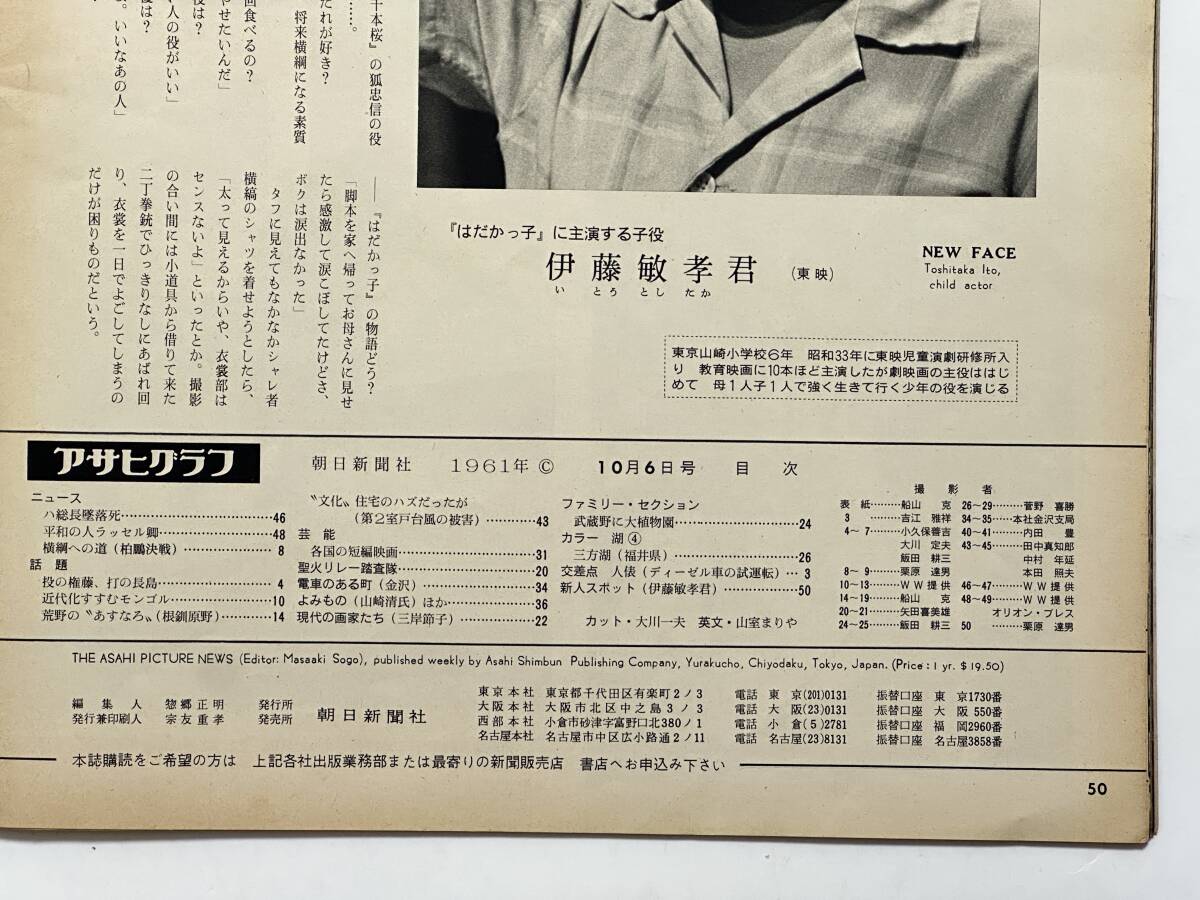 千本桜』の狐忠信の役
……。
たれが好き？
将来横綱になる素質
回食べるの？
やせたいんだ」
役は？
い人の役がいい」
役は？
よ。いいなあの人」
――『はだかっ子』の物語どう？
「脚本を家へ帰ってお母さんに見せ
たら感激して涙こぼしてたけどさ、
ボクは涙出なかった」
タフに見えてもなかなかシャレ者
横縞のシャツを着せようとしたら、
「太って見えるからいや、衣裳部は
センスないよ」といったとか。撮影
の合い間には小道具から借りて来た
二丁拳銃でひっきりなしにあばれ回
り、衣裳を一日でよごしてしまうの
だけが困りものだという。
『はだかっ子』に主演する子役
伊藤敏孝君（東映）
いとうとしたか
NEW FACE
Toshitaka Ito,
child actor
東京山崎小学校6年　昭和33年に東映児童演劇研修所入
り　教育映画に10本ほど主演したが劇映画の主役ははじ
めて　母1人子1人で強く生きて行く少年の役を演じる
アサヒグラフ　朝日新聞社　1961年 ©　10月6日号　目次
ニュース
ハ総長墜落死……46
平和の人ラッセル卿……48
横綱への道（柏鵬決戦）……8
話題
投の権藤、打の長島……4
近代化すすむモンゴル……10
荒野の〝あすなろ〟（根釧原野）……14
〝文化〟住宅のハズだったが
（第2室戸台風の被害）……43
芸能
各国の短編映画……31
聖火リレー踏査隊……20
電車のある町（金沢）……34
よみもの（山崎清氏）ほか……36
現代の画家たち（三岸節子）……22
ファミリー・セクション
武蔵野に大植物園……24
カラー　湖④
三方湖（福井県）……26
交差点　人俵（ディーゼル車の試運転）…3
新人スポット（伊藤敏孝君）……50
カット・大川一夫　英文・山室まりや
撮影者
表紙……船山　克
3……吉江雅祥
4～7……小久保善吉
大川定夫
飯田耕三
8～9……栗原達男
10～13……WW提供
14～19……船山　克
20～21……矢田喜美雄
24～25……飯田耕三
26～29……菅野喜勝
34～35……本社金沢支局
40～41……内田　豊
43～45……田中真知郎
中村年延
本田照夫
46～47……WW提供
48～49……WW提供
オリオン・プレス
50……栗原達男
THE ASAHI PICTURE NEWS (Editor: Masaaki Sogo), published weekly by Asahi Shimbun Publishing Company, Yurakucho, Chiyodaku, Tokyo, Japan. (Price: 1 yr. $19.50)
編集人　惣郷正明
発行兼印刷人　宗友重孝
発行所
発売所
朝日新聞社
東京本社　東京都千代田区有楽町2ノ3　電話　東京(201)0131　振替口座　東京1730番
大阪本社　大阪市北区中之島3ノ3　電話　大阪(23)0131　振替口座　大阪550番
西部本社　小倉市砂津字富野口北380ノ1　電話　小倉(5)2781　振替口座　福岡2960番
名古屋本社　名古屋市中区広小路通2ノ11　電話　名古屋(23)8131　振替口座　名古屋3858番
本誌購読をご希望の方は　上記各社出版業務部または最寄りの新聞販売店　書店へお申込み下さい
50